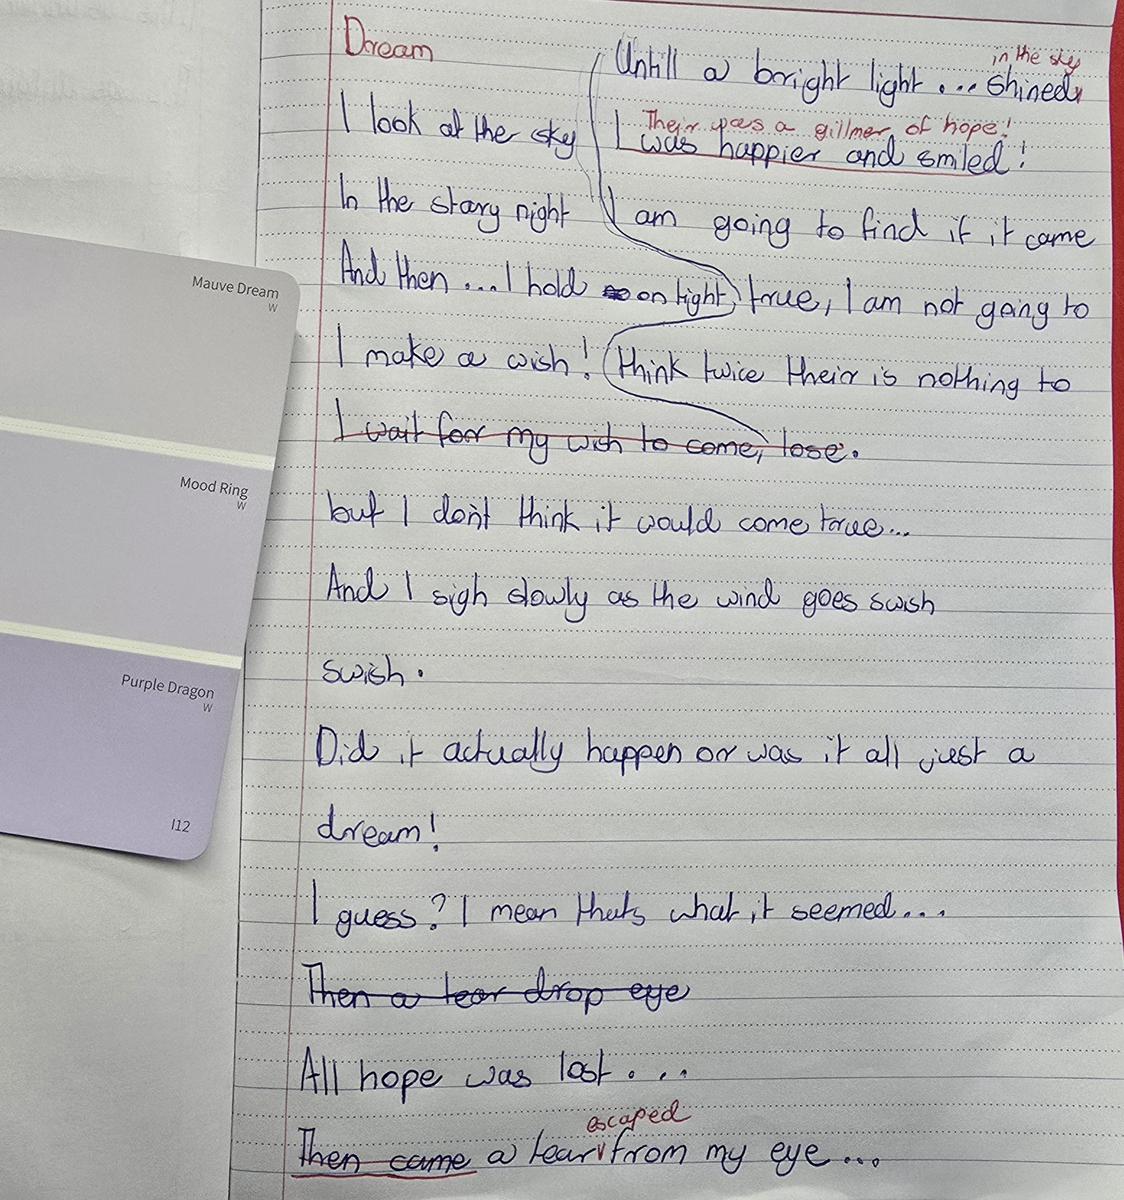 Dream
I look at the sky
In the stary night
And then ... I hold so on tight,
I make a wish!
I wait for my wish to come,
but I don't think it would come true...
And I sigh slowly as the wind goes swish
swish.
Did it actually happen or was it all just a
dream!
I guess? I mean thats what it seemed....
Then a tear drop eye
All hope was lost....
escaped
Then came a tear from my eye ...
in the sky
Untill a bright light ... shined
Their was a gillmer of hope!
I was happier and smiled!
I am going to find if it came
true, I am not going to
think twice their is nothing to
lose.
Mauve Dream
W
Mood Ring
W
Purple Dragon
W
I12